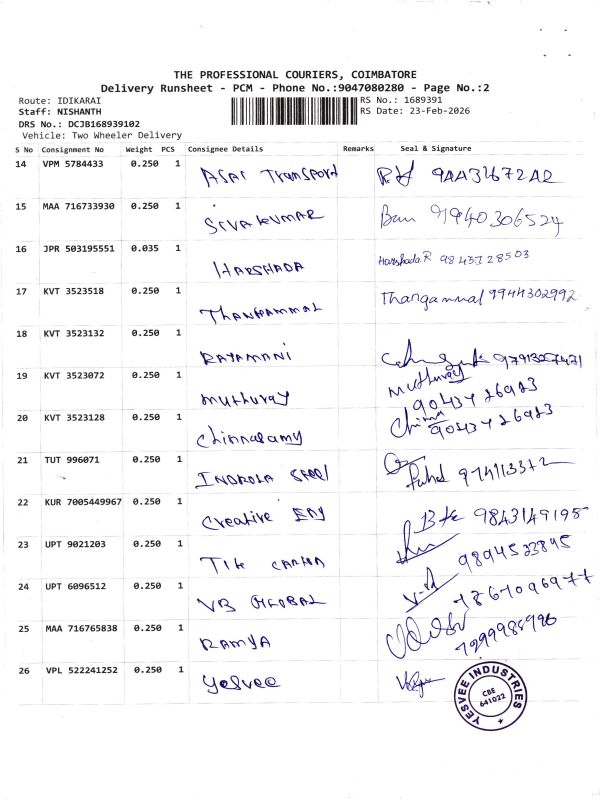 THE PROFESSIONAL COURIERS, COIMBATORE
Delivery Runsheet - PCM - Phone No.:9047080280 - Page No.:2
Route: IDIKARAI RS No.: 1689391
Staff: NISHANTH RS Date: 23-Feb-2026
DRS No.: DCJB168939102
Vehicle: Two Wheeler Delivery
S No Consignment No Weight PCS Consignee Details Remarks Seal & Signature
14 VPM 5784433 0.250 1 ASAI Transport
15 MAA 716733930 0.250 1 SIVAKUMAR 9940306524
16 JPR 503195551 0.035 1 HARSHADA Harshada.R
17 KVT 3523518 0.250 1 Thangammal 9944302992
18 KVT 3523132 0.250 1 RAJAMANI
19 KVT 3523072 0.250 1 muthuraj Muthuraj 9043726983
20 KVT 3523128 0.250 1 Chinnasamy China 9043726983
21 TUT 996071 0.250 1 Steel
22 KUR 7005449967 0.250 1 Creative 9843149195
23 UPT 9021203 0.250 1 9894523845
24 UPT 6096512 0.250 1 VB GLOBAL
25 MAA 716765838 0.250 1 RAMYA
26 VPL 522241252 0.250 1 Yesvee
YESVEE INDUSTRIES
CBE
641022